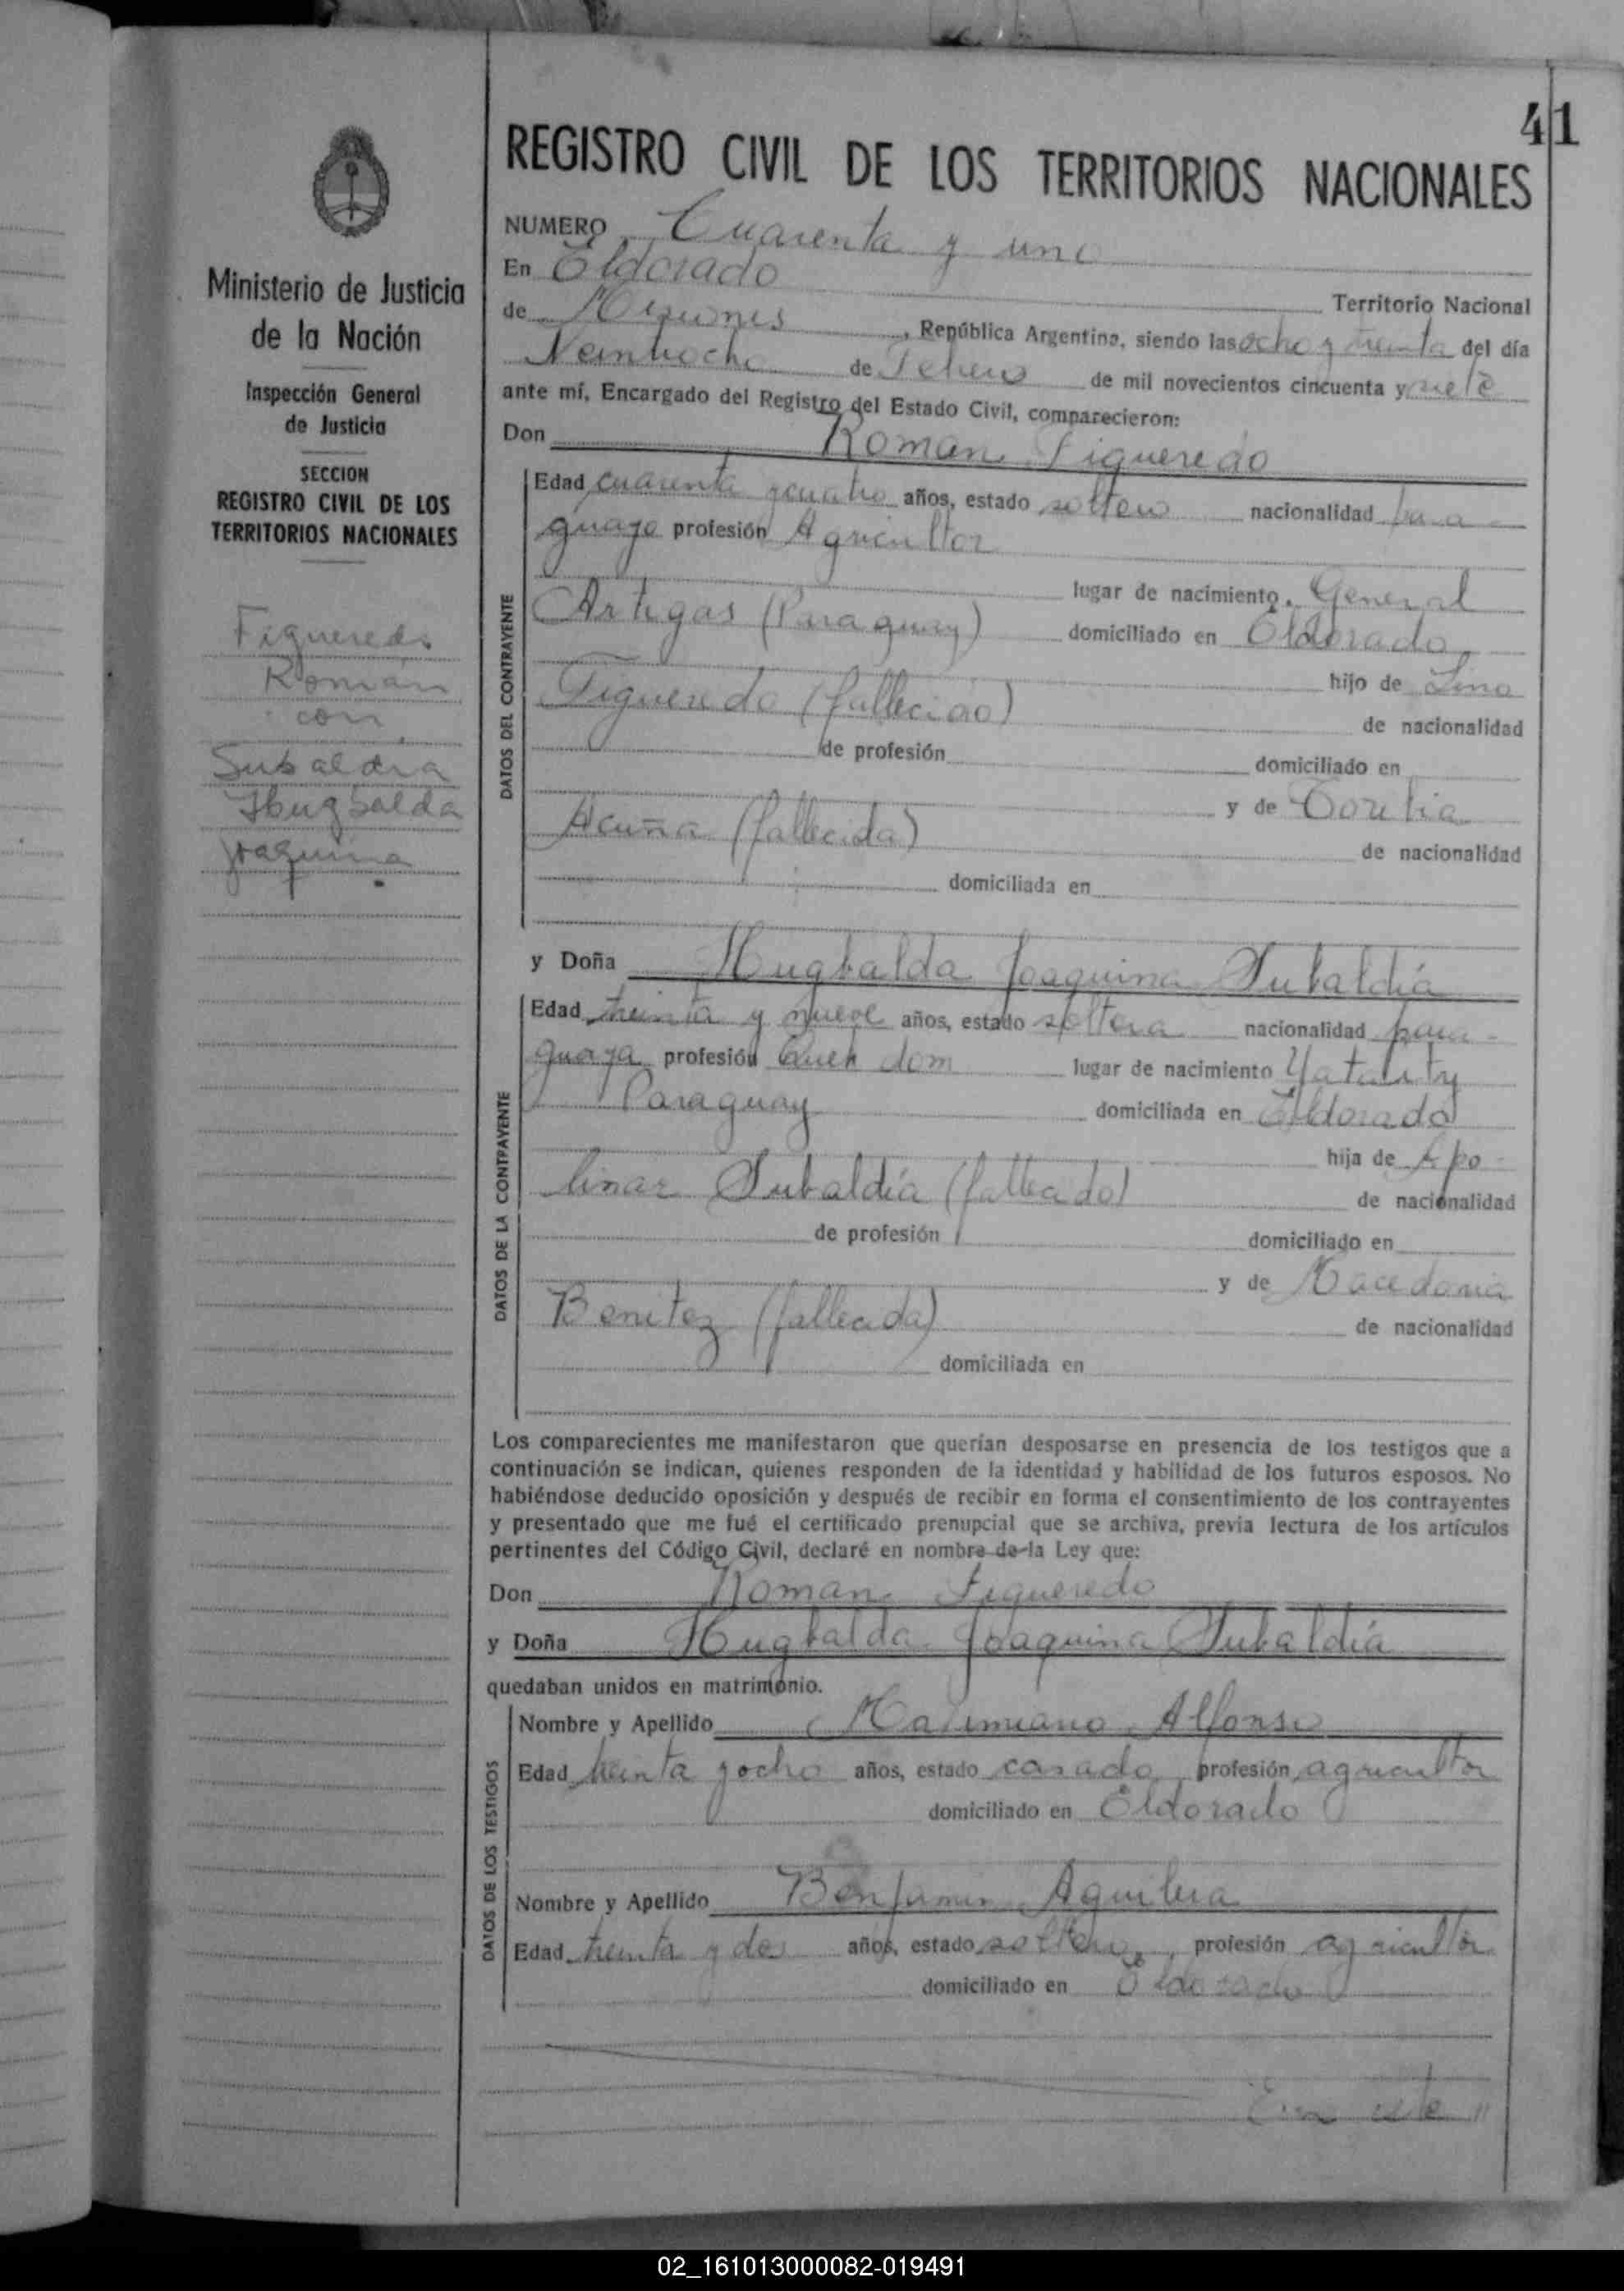 41
REGISTRO CIVIL DE LOS TERRITORIOS NACIONALES
Ministerio de Justicia
de la Nación
Inspección General
de Justicia
SECCION
REGISTRO CIVIL DE LOS
TERRITORIOS NACIONALES
Figueredo
Román
con
Subaldía
Hugbalda
Joaquina
NUMERO Cuarenta y uno
En Eldorado
Territorio Nacional
de Misiones, República Argentina, siendo las ocho y treinta del día
Veintiocho de Febrero de mil novecientos cincuenta y siete
ante mí, Encargado del Registro del Estado Civil, comparecieron:
Don Roman Figueredo
DATOS DEL CONTRAYENTE
Edad cuarenta y cuatro años, estado soltero nacionalidad para-
guayo profesión Agricultor
lugar de nacimiento. General
Artigas (Paraguay) domiciliado en Eldorado
hijo de Lino
Figueredo (fallecido) de nacionalidad
de profesión domiciliado en
y de Toribia
Acuña (fallecida) de nacionalidad
domiciliada en
y Doña Hugbalda Joaquina Subaldía
DATOS DE LA CONTRAYENTE
Edad treinta y nueve años, estado soltera nacionalidad para-
guaya profesión Queh dom lugar de nacimiento Yataity
Paraguay domiciliada en Eldorado
hija de Apo-
linar Subaldía (fallecido) de nacionalidad
de profesión domiciliado en
y de Macedonia
Benitez (fallecida) de nacionalidad
domiciliada en
Los comparecientes me manifestaron que querían desposarse en presencia de los testigos que a
continuación se indican, quienes responden de la identidad y habilidad de los futuros esposos. No
habiéndose deducido oposición y después de recibir en forma el consentimiento de los contrayentes
y presentado que me fué el certificado prenupcial que se archiva, previa lectura de los artículos
pertinentes del Código Civil, declaré en nombre de la Ley que:
Don Roman Figueredo
y Doña Hugbalda Joaquina Subaldía
quedaban unidos en matrimonio.
DATOS DE LOS TESTIGOS
Nombre y Apellido Maximiano Alfonso
Edad treinta y ocho años, estado casado profesión agricultor
domiciliado en Eldorado
Nombre y Apellido Benjamin Aguilera
Edad treinta y dos años, estado soltero, profesión agricultor
domiciliado en Eldorado
En este //
02_161013000082-019491